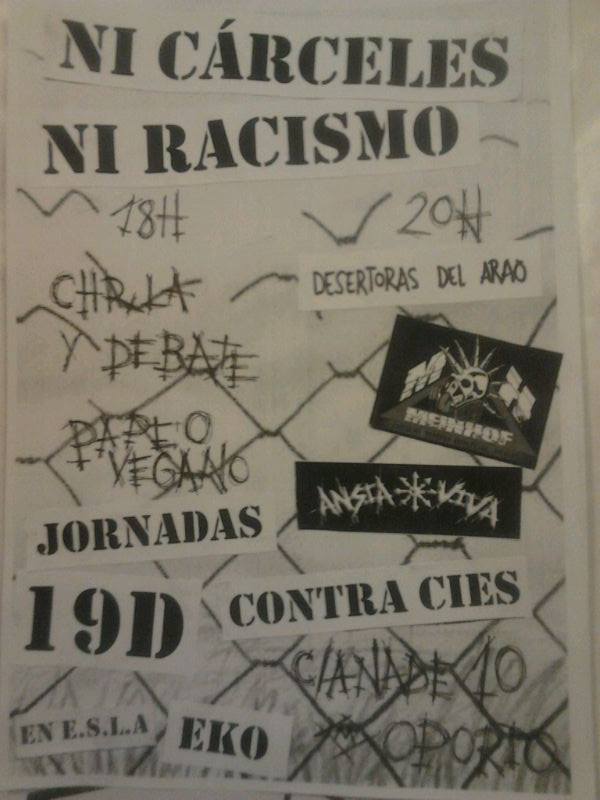 NI CÁRCELES
NI RACISMO
18H
CHRLA
Y DEBATE
PAPEO
VEGANO
20H
DESERTORAS DEL ARAO
MEINHOF
ANSIA VIVA
JORNADAS
19D
CONTRA CIES
C/ANADE 10
OPORTO
EN E.S.L.A
EKO